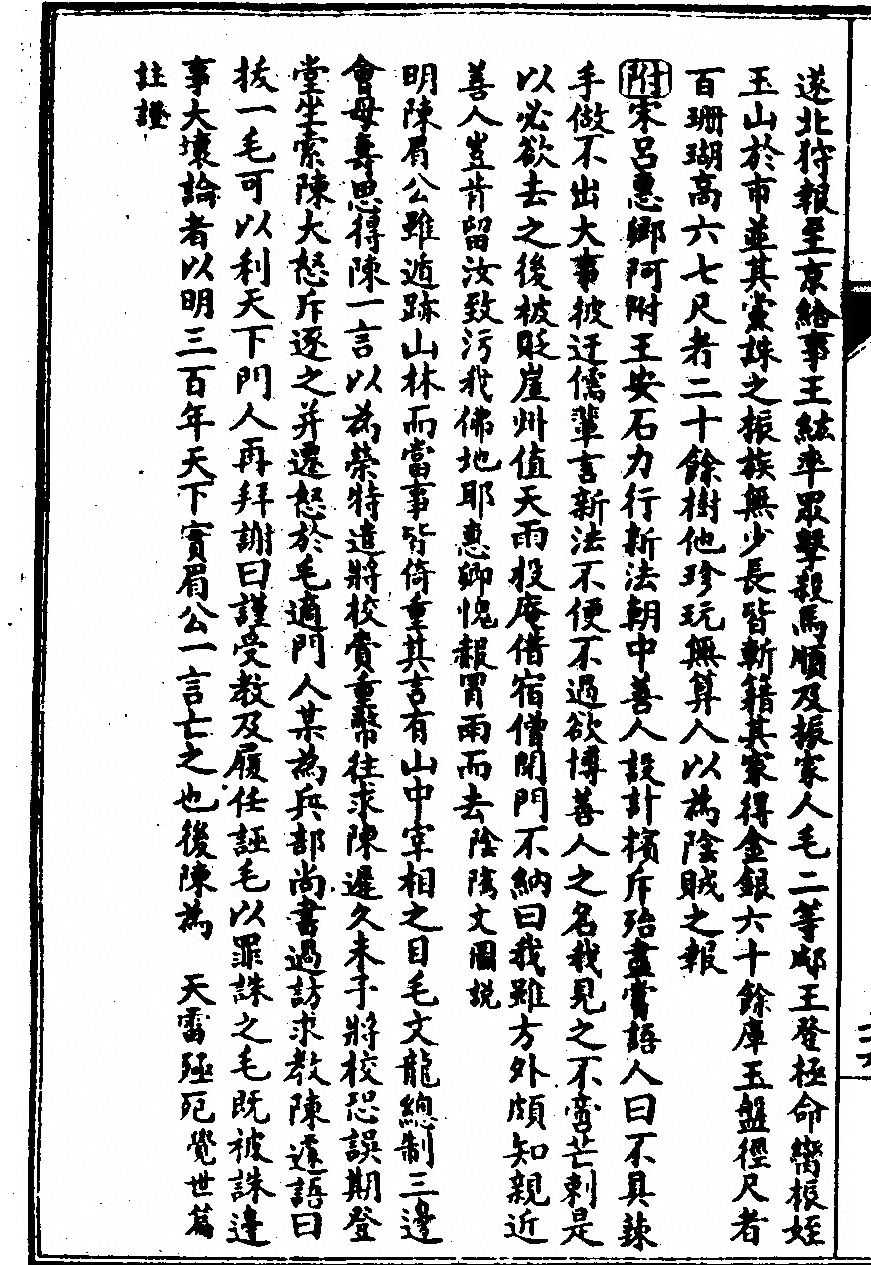 遂北狩報至京給事王紘率眾擊殺馬順及振家人毛二等郕王登極命臠振姪
玉山於市並其黨誅之振族無少長皆斬籍其家得金銀六十餘庫玉盤徑尺者
百珊瑚高六七尺者二十餘樹他珍玩無算人以為陰賊之報
附宋呂惠卿阿附王安石力行新法朝中善人設計擯斥殆盡嘗語人曰不具辣
手做不出大事彼迂儒輩言新法不便不過欲博善人之名我見之不啻芒刺是
以必欲去之後被貶崖州值天雨投庵借宿僧閉門不納曰我雖方外頗知親近
善人豈肯留汝致污我佛地耶惠卿愧報冒雨而去陰隲文圖說
明陳眉公雖遁跡山林而當事皆倚重其言有山中宰相之目毛文龍總制三邊
會母壽思得陳一言以為榮特遣將校賫重幣往求陳遲久未予將校恐誤期登
堂坐索陳大怒斥逐之并遷怒於毛適門人某為兵部尚書過訪求教陳遽語曰
拔一毛可以利天下門人再拜謝曰謹受教及履任誣毛以罪誅之毛既被誅邊
事大壞論者以明三百年天下實眉公一言亡之也後陳為　天雷殛死覺世篇
註證